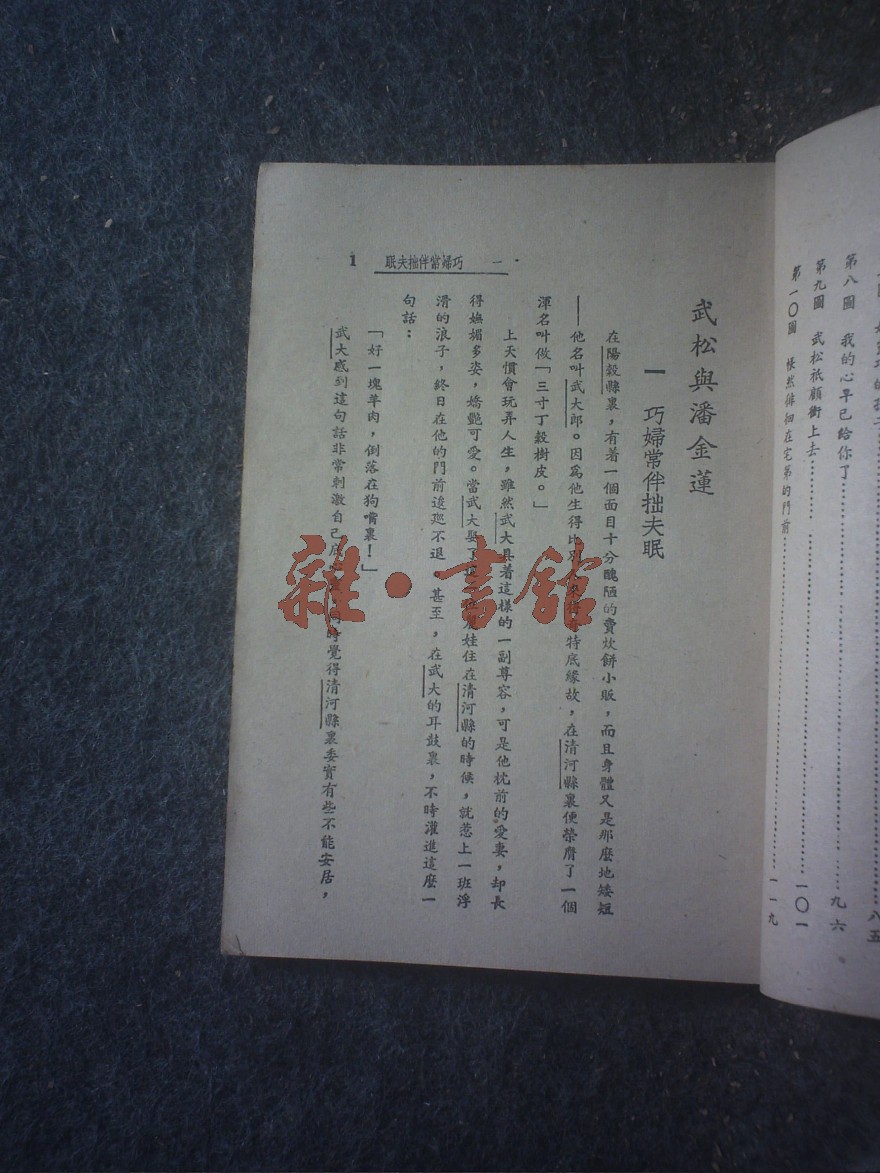 第八圖　我的心早已給你了……九六
第九圖　武松祇顧街上去……一〇一
第一〇圖　悽然徘徊在宅第的門前……一一九
武松與潘金蓮
一　巧婦常伴拙夫眠
在陽穀縣裏，有着一個面目十分醜陋的賣炊餅小販，而且身體又是那麼地矮短
——他名叫武大郎。因爲他生得比別特底緣故，在清河縣裏便榮膺了一個
渾名叫做「三寸丁穀樹皮。」
上天慣會玩弄人生，雖然武大具着這樣的一副尊容，可是他枕前的愛妻，却長
得嫵媚多姿，嬌艷可愛。當武大娶了娃住在清河縣的時候，就惹上一班浮
滑的浪子，終日在他的門前逡巡不退。甚至，在武大的耳鼓裏，不時灌進這麼一
句話：
「好一塊羊肉，倒落在狗嘴裏！」
武大感到這句話非常刺激自己底時覺得清河縣裏委實有些不能安居，
一　巧婦常伴拙夫眠
1
雜·書館